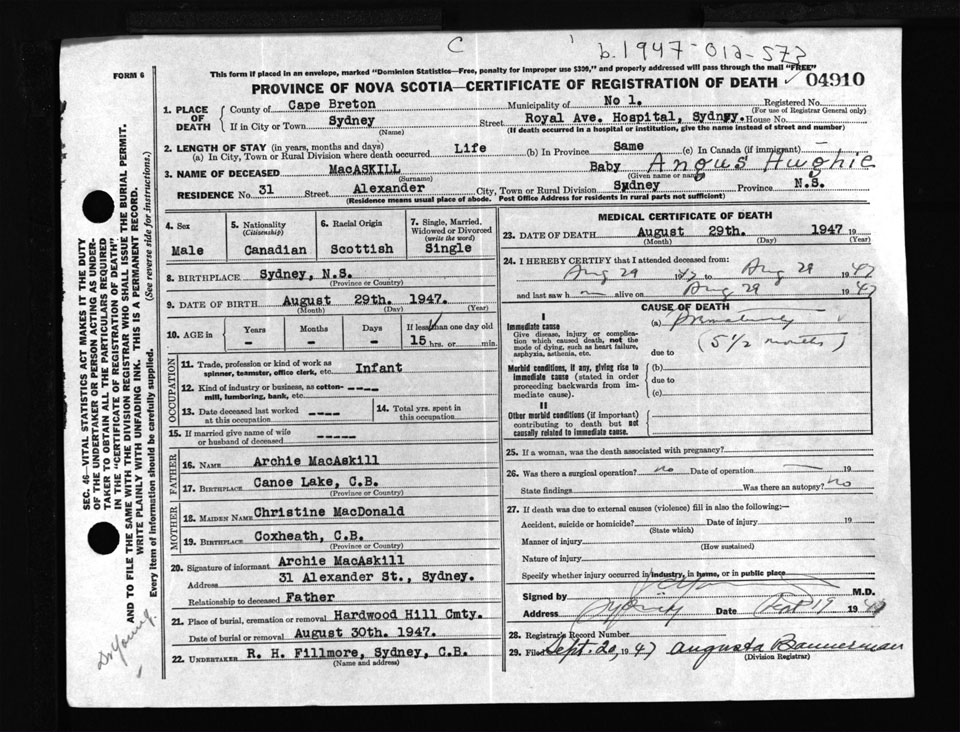 C b. 1947-012-573
FORM 6
This form if placed in an envelope, marked "Dominion Statistics—Free, penalty for improper use $300," and properly addressed will pass through the mail "FREE"
PROVINCE OF NOVA SCOTIA—CERTIFICATE OF REGISTRATION OF DEATH 04910
1. PLACE OF DEATH
County of Cape Breton Municipality of No 1. Registered No.
(For use of Registrar General only)
If in City or Town Sydney Street Royal Ave. Hospital, Sydney. House No.
(Name) (If death occurred in a hospital or institution, give the name instead of street and number)
2. LENGTH OF STAY (in years, months and days)
(a) In City, Town or Rural Division where death occurred Life (b) In Province Same (c) In Canada (if immigrant) —
3. NAME OF DECEASED MacASKILL Baby Angus Hughie
(Surname) (Given name or names)
RESIDENCE No. 31 Street Alexander City, Town or Rural Division Sydney Province N.S.
(Residence means usual place of abode. Post Office Address for residents in rural parts not sufficient)
4. Sex
Male
5. Nationality
(Citizenship)
Canadian
6. Racial Origin
Scottish
7. Single, Married, Widowed or Divorced
(write the word)
Single
8. BIRTHPLACE Sydney, N.S.
(Province or Country)
9. DATE OF BIRTH August 29th. 1947.
(Month) (Day) (Year)
10. AGE in Years Months Days If less than one day old
- - - 15 hrs. or min.
OCCUPATION
11. Trade, profession or kind of work as
spinner, teamster, office clerk, etc. Infant
12. Kind of industry or business, as cotton-
mill, lumbering, bank, etc. ----
13. Date deceased last worked
at this occupation ----
14. Total yrs. spent in
this occupation
15. If married give name of wife
or husband of deceased -----
FATHER
16. NAME Archie MacAskill
17. BIRTHPLACE Canoe Lake, C.B.
(Province or Country)
MOTHER
18. MAIDEN NAME Christine MacDonald
19. BIRTHPLACE Coxheath, C.B.
(Province or Country)
20. Signature of informant Archie MacAskill
Address 31 Alexander St., Sydney.
Relationship to deceased Father
21. Place of burial, cremation or removal Hardwood Hill Cmty.
Date of burial or removal August 30th. 1947.
22. UNDERTAKER R. H. Fillmore, Sydney, C.B.
(Name and address)
MEDICAL CERTIFICATE OF DEATH
23. DATE OF DEATH August 29th. 1947 19
(Month) (Day) (Year)
24. I HEREBY CERTIFY that I attended deceased from:
Aug 29 1947 to Aug 29 1947
and last saw h m alive on Aug 29 1947
CAUSE OF DEATH
I
Immediate cause (a) Prematurity
Give disease, injury or complica-
tion which caused death, not the
mode of dying, such as heart failure,
asphyxia, asthenia, etc. due to
(5 1/2 months)
Morbid conditions, if any, giving rise to (b)
immediate cause (stated in order due to
proceeding backwards from im-
mediate cause). (c)
II
Other morbid conditions (if important)
contributing to death but not
causally related to immediate cause.
25. If a woman, was the death associated with pregnancy?
26. Was there a surgical operation? no Date of operation — 19
State findings Was there an autopsy? no
27. If death was due to external causes (violence) fill in also the following:—
Accident, suicide or homicide? Date of injury 19
(State which)
Manner of injury
(How sustained)
Nature of injury
Specify whether injury occurred in industry, in home, or in public place
Signed by M.D.
Address Sydney Date Sept 19 1947
28. Registrar's Record Number
29. Filed Sept. 20, 1947 Augusta Bannerman
(Division Registrar)
SEC. 46—VITAL STATISTICS ACT MAKES IT THE DUTY
OF THE UNDERTAKER OR PERSON ACTING AS UNDER-
TAKER TO OBTAIN ALL THE PARTICULARS REQUIRED
IN THE "CERTIFICATE OF REGISTRATION OF DEATH"
AND TO FILE THE SAME WITH THE DIVISION REGISTRAR WHO SHALL ISSUE THE BURIAL PERMIT.
WRITE PLAINLY WITH UNFADING INK. THIS IS A PERMANENT RECORD.
Every item of Information should be carefully supplied. (See reverse side for instructions.)
Dr Young.